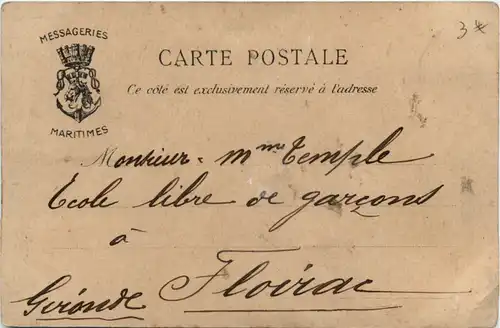 MESSAGERIES
MARITIMES
3*
CARTE POSTALE
Ce côté est exclusivement réservé à l'adresse
Monsieur - Mme Temple
Ecole libre de garçons
à
Floirac
Gironde